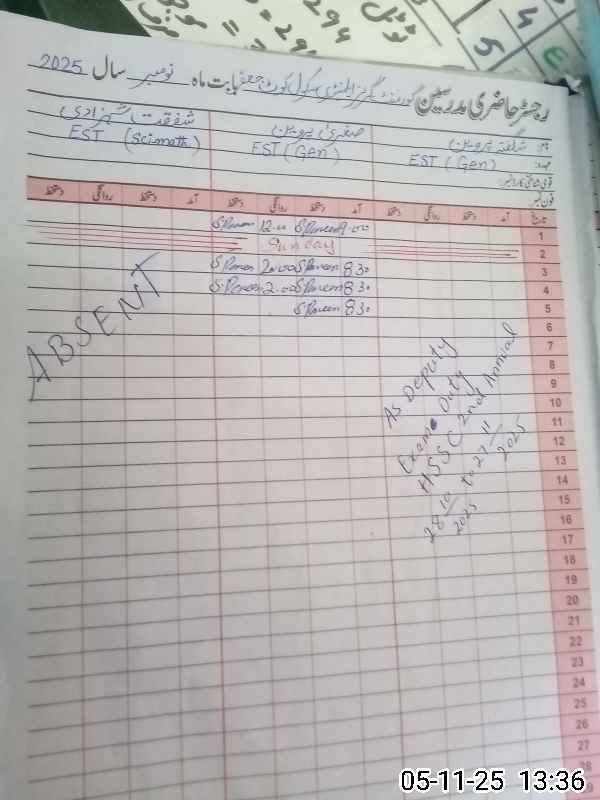 ٹوٹل
رجسٹر حاضری مدرسین گورنمنٹ گرلز ایلیمنٹری سکول کوٹ جعفر بابت ماہ نومبر سال 2025
نام: شگفتہ پروین صغریٰ پروین شفقت شہزادی
عہدہ: EST (Gen) EST (Gen) EST (Sci math)
قومی شناختی کارڈ نمبر:
فون نمبر:
تاریخ آمد دستخط روانگی دستخط آمد دستخط روانگی دستخط آمد دستخط روانگی دستخط
1 9.00 S.Parveen 12.00 S.Parveen
2 Sunday
3 8 30 S.Parveen 2.00 S.Parveen
4 8 30 S.Parveen 2.00 S.Parveen
5 8 30 S.Parveen
6
7
8
9
10
11
12
13
14
15
16
17
18
19
20
21
22
23
24
25
26
27
28
ABSENT
As Deputy
Exam Duty
HSSC 2nd Annual
28/10/2025 to 27/11/2025
05-11-25 13:36